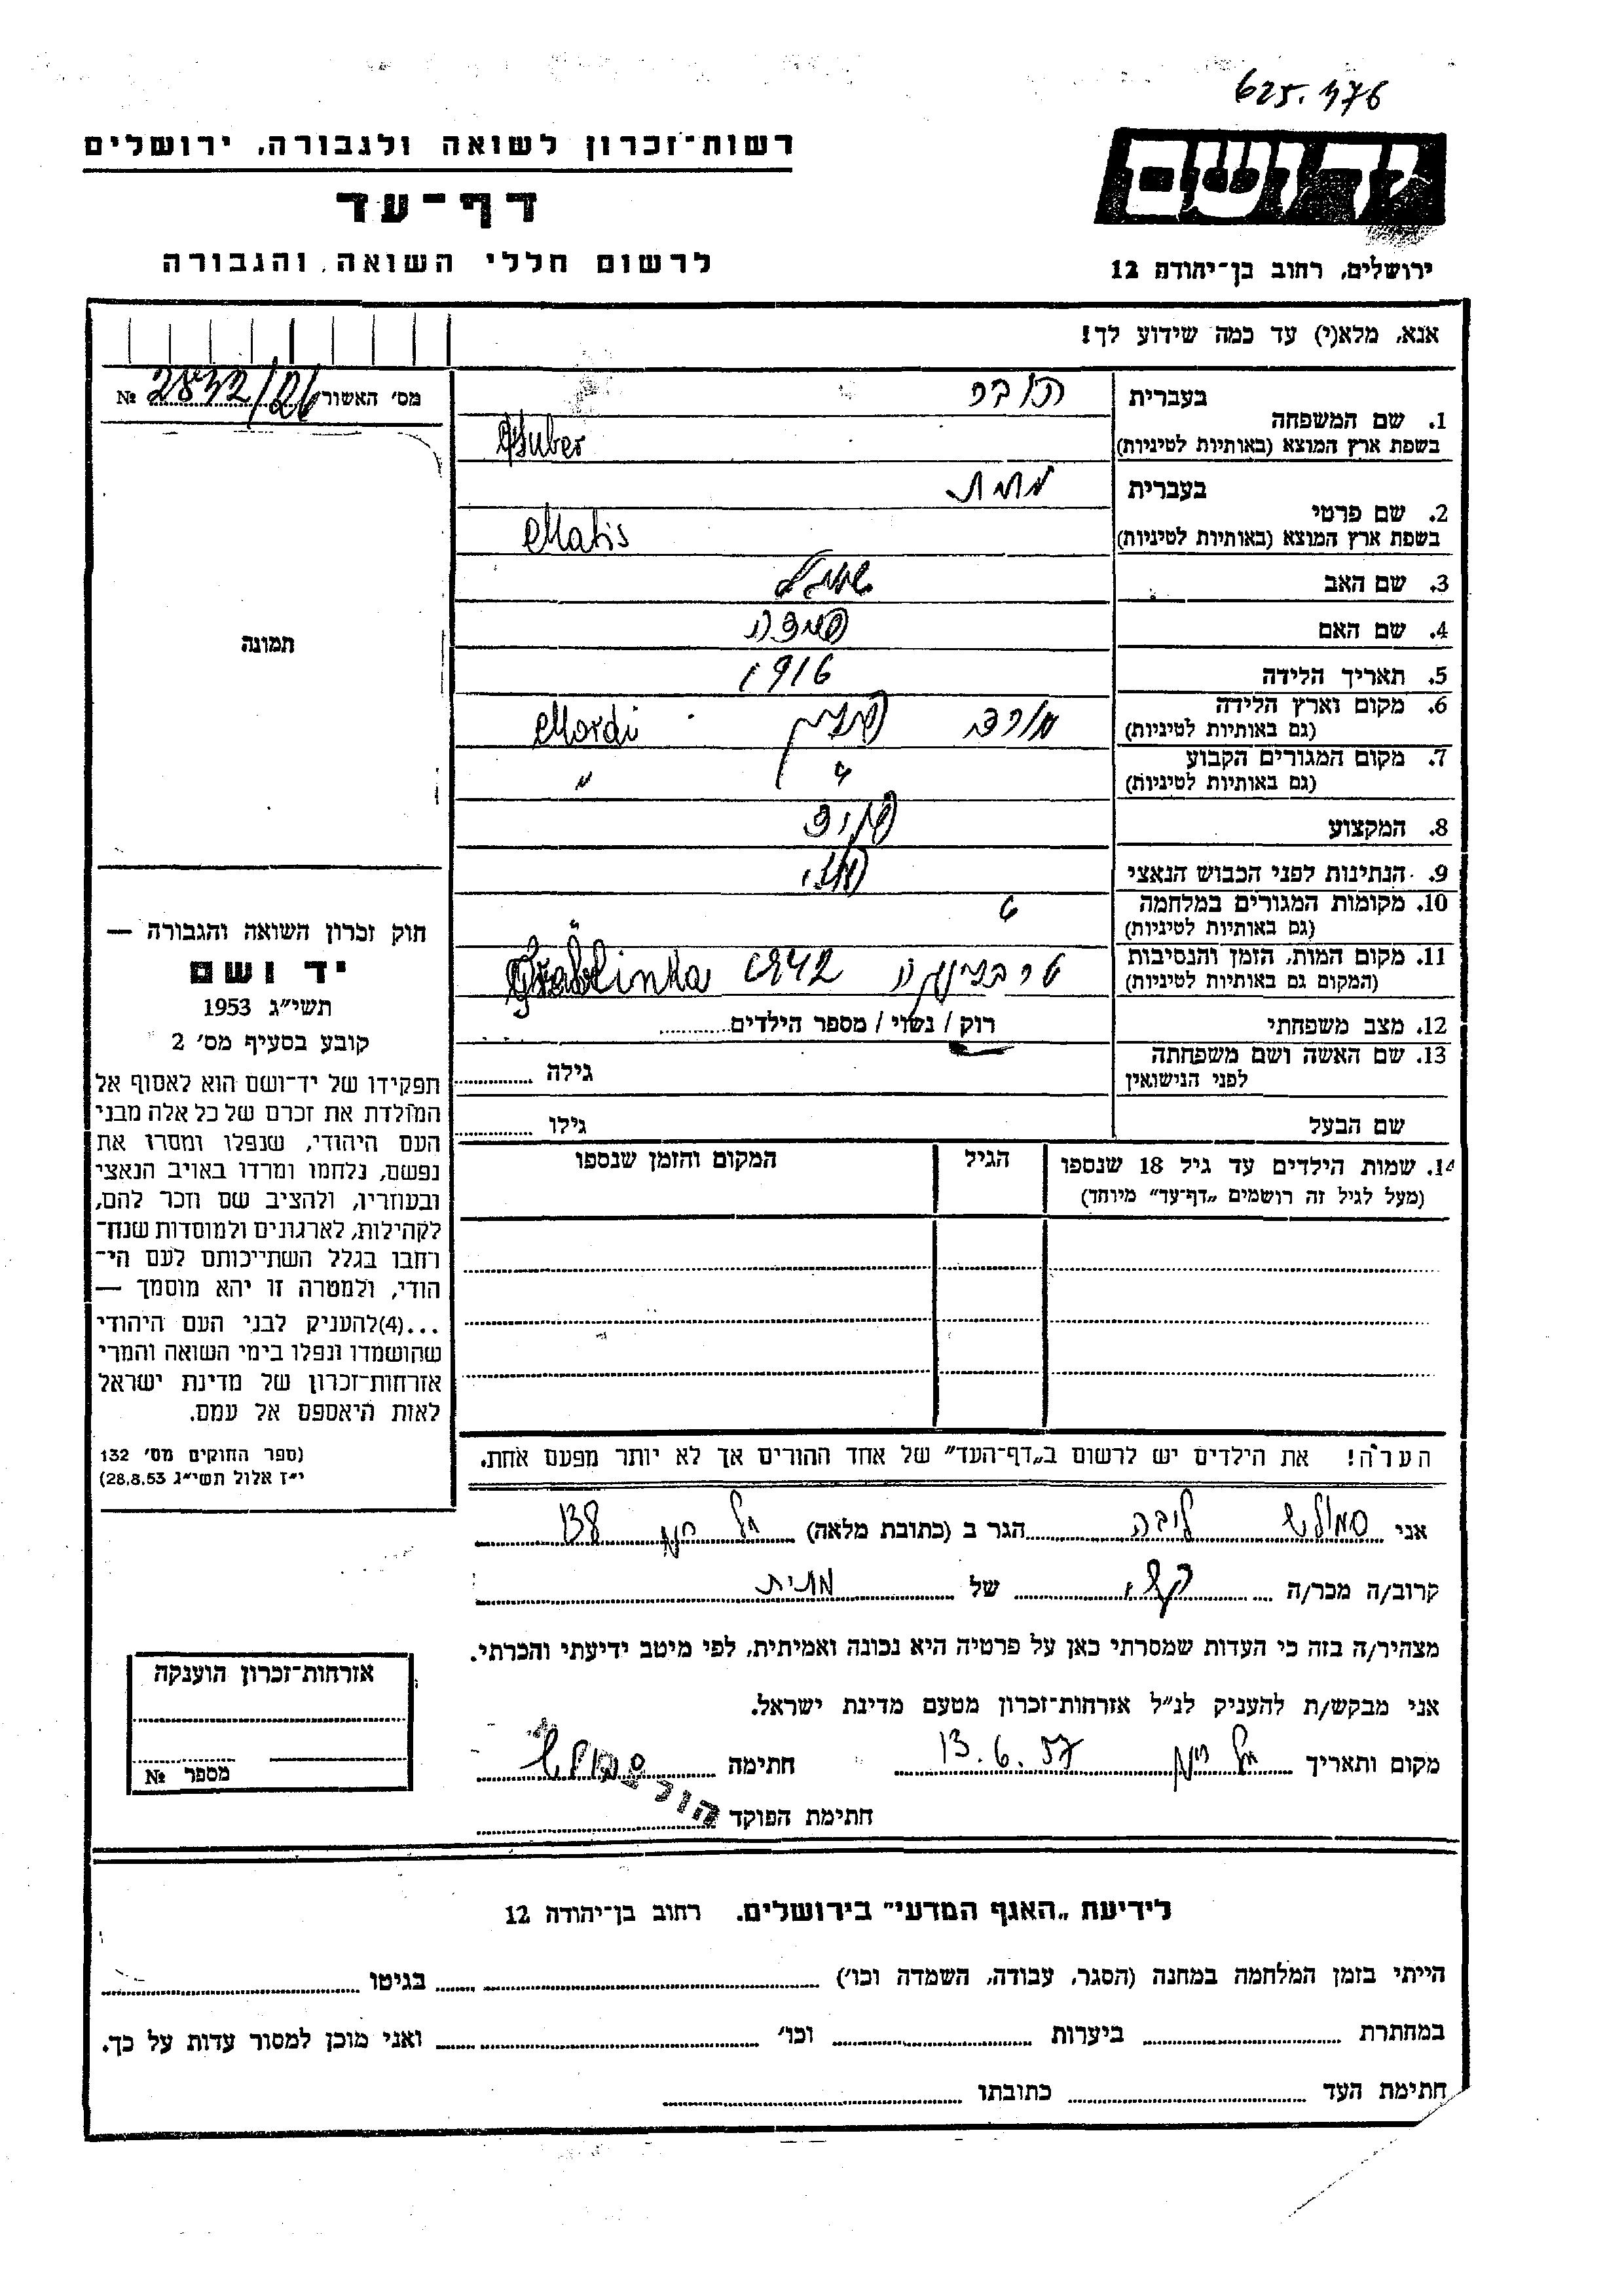 625.476
רשות־זכרון לשואה ולגבורה, ירושלים
דף־עד
לרשום חללי השואה והגבורה
יד ושם
ירושלים, רחוב בן־יהודה 12
אנא, מלא(י) עד כמה שידוע לך!
מס׳ האשור 2832/26 №
בעברית
1. שם המשפחה
בשפת ארץ המוצא (באותיות לטיניות) Huber
בעברית
2. שם פרטי
בשפת ארץ המוצא (באותיות לטיניות) Matis
3. שם האב
4. שם האם
5. תאריך הלידה 1916
6. מקום וארץ הלידה
(גם באותיות לטיניות) Mordi
7. מקום המגורים הקבוע
(גם באותיות לטיניות) "
8. המקצוע
9. הנתינות לפני הכבוש הנאצי
10. מקומות המגורים במלחמה
(גם באותיות לטיניות)
11. מקום המות, הזמן והנסיבות טרבלינקה 1942
(המקום גם באותיות לטיניות)
12. מצב משפחתי רוק / נשוי / מספר הילדים
13. שם האשה ושם משפחתה
לפני הנישואין גילה
שם הבעל גילו
14. שמות הילדים עד גיל 18 שנספו הגיל המקום והזמן שנספו
(מעל לגיל זה רושמים „דף־עד״ מיוחד)
הערה! את הילדים יש לרשום ב„דף־העד״ של אחד ההורים אך לא יותר מפעם אחת.
תמונה
חוק זכרון השואה והגבורה —
יד ושם
תשי״ג 1953
קובע בסעיף מס׳ 2
תפקידו של יד־ושם הוא לאסוף אל
המולדת את זכרם של כל אלה מבני
העם היהודי, שנפלו ומסרו את
נפשם, נלחמו ומרדו באויב הנאצי
ובעוזריו, ולהציב שם וזכר להם,
לקהילות, לארגונים ולמוסדות שנח־
רחבו בגלל השתייכותם לעם הי־
הודי, ולמטרה זו יהא מוסמך —
...(4)להעניק לבני העם היהודי
שהושמדו ונפלו בימי השואה והמרי
אזרחות־זכרון של מדינת ישראל
לאות היאספם אל עמם.
(ספר החוקים מס׳ 132
י״ז אלול תשי״ג 28.8.53)
אני סמולש ליבה הגר ב (כתובת מלאה) 138
קרוב/ה מכר/ה של מתית
מצהיר/ה בזה כי העדות שמסרתי כאן על פרטיה היא נכונה ואמיתית, לפי מיטב ידיעתי והכרתי.
אני מבקש/ת להעניק לנ״ל אזרחות־זכרון מטעם מדינת ישראל.
מקום ותאריך 13.6.57 חתימה
חתימת הפוקד
אזרחות־זכרון הוענקה
מספר №
לידיעת „האגף המדעי״ בירושלים. רחוב בן־יהודה 12
הייתי בזמן המלחמה במחנה (הסגר, עבודה, השמדה וכו׳) בגיטו
במחתרת ביערות וכו׳ ואני מוכן למסור עדות על כך.
חתימת העד כתובתו